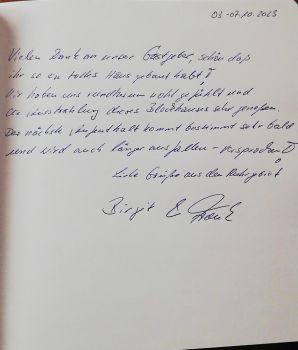 03.-07.10.2023
Vielen Dank an unsere Gastgeber, schön daß
ihr so ein tolles Haus gebaut habt!
Wir haben uns rundherum wohl gefühlt und
die Ausstrahlung dieses Blockhauses sehr genossen.
Der nächste Aufenthalt kommt bestimmt sehr bald
und wird auch länger ausfallen - versprochen!
Liebe Grüße aus dem Ruhrgebiet!
Birgit &